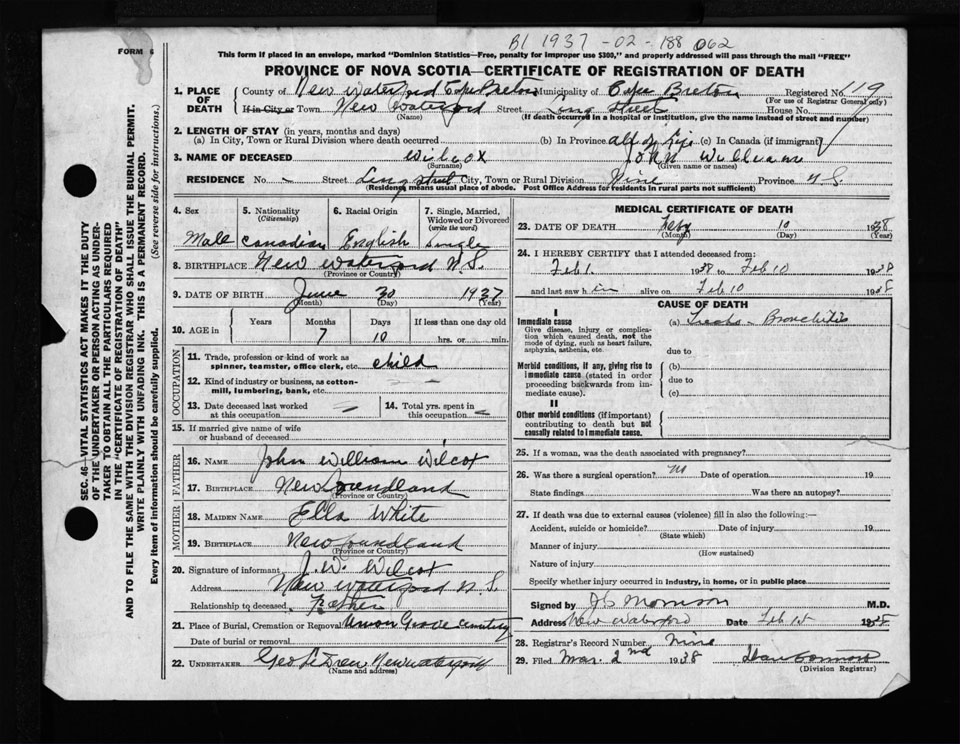 B1 1937-02-188 062
FORM 6
This form if placed in an envelope, marked "Dominion Statistics—Free, penalty for improper use $300," and properly addressed will pass through the mail "FREE"
PROVINCE OF NOVA SCOTIA—CERTIFICATE OF REGISTRATION OF DEATH
1. PLACE OF DEATH County of New Waterford Cape Breton Municipality of Cape Breton Registered No. 119
(For use of Registrar General only)
If in City or Town New Waterford Street Ling Street House No.
(Name) (If death occurred in a hospital or institution, give the name instead of street and number)
2. LENGTH OF STAY (in years, months and days)
(a) In City, Town or Rural Division where death occurred (b) In Province all of life (c) In Canada (if immigrant)
3. NAME OF DECEASED Wilcox John William
(Surname) (Given name or names)
RESIDENCE No. - Street Ling Street City, Town or Rural Division Nine Province N.S.
(Residence means usual place of abode. Post Office Address for residents in rural parts not sufficient)
4. Sex 5. Nationality (Citizenship) 6. Racial Origin 7. Single, Married, Widowed or Divorced (write the word)
Male Canadian English Single
8. BIRTHPLACE New Waterford N.S.
(Province or Country)
9. DATE OF BIRTH June 30 1937
(Month) (Day) (Year)
10. AGE in Years Months Days If less than one day old
7 10 hrs. or min.
OCCUPATION
11. Trade, profession or kind of work as spinner, teamster, office clerk, etc. child
12. Kind of industry or business, as cotton-mill, lumbering, bank, etc.
13. Date deceased last worked at this occupation 14. Total yrs. spent in this occupation
15. If married give name of wife or husband of deceased
FATHER
16. NAME John William Wilcox
17. BIRTHPLACE Newfoundland
(Province or Country)
MOTHER
18. MAIDEN NAME Ella White
19. BIRTHPLACE Newfoundland
(Province or Country)
20. Signature of informant J.W. Wilcox
Address New Waterford N.S.
Relationship to deceased Father
21. Place of Burial, Cremation or Removal Union Grove Cemetery
Date of burial or removal
22. UNDERTAKER Geo New Waterford
(Name and address)
MEDICAL CERTIFICATE OF DEATH
23. DATE OF DEATH Feby 10 1938
(Month) (Day) (Year)
24. I HEREBY CERTIFY that I attended deceased from:
Feb 1. 1938 to Feb 10 1938
and last saw him alive on Feb 10 1938
CAUSE OF DEATH
I
Immediate cause (a) Tracheo-Bronchitis
Give disease, injury or complication which caused death, not the mode of dying, such as heart failure, asphyxia, asthenia, etc.
due to
Morbid conditions, if any, giving rise to immediate cause (stated in order proceeding backwards from immediate cause).
(b)
due to
(c)
II
Other morbid conditions (if important) contributing to death but not causally related to immediate cause.
25. If a woman, was the death associated with pregnancy?
26. Was there a surgical operation? No Date of operation 19
State findings Was there an autopsy?
27. If death was due to external causes (violence) fill in also the following:—
Accident, suicide or homicide? Date of injury 19
(State which)
Manner of injury
(How sustained)
Nature of injury
Specify whether injury occurred in industry, in home, or in public place
Signed by J C Morrison M.D.
Address New Waterford Date Feb 15 1938
28. Registrar's Record Number Nine
29. Filed Mar. 2nd 1938
(Division Registrar)
SEC. 46—VITAL STATISTICS ACT MAKES IT THE DUTY
OF THE UNDERTAKER OR PERSON ACTING AS UNDER-
TAKER TO OBTAIN ALL THE PARTICULARS REQUIRED
IN THE "CERTIFICATE OF REGISTRATION OF DEATH"
AND TO FILE THE SAME WITH THE DIVISION REGISTRAR WHO SHALL ISSUE THE BURIAL PERMIT.
WRITE PLAINLY WITH UNFADING INK. THIS IS A PERMANENT RECORD.
Every item of information should be carefully supplied. (See reverse side for instructions.)